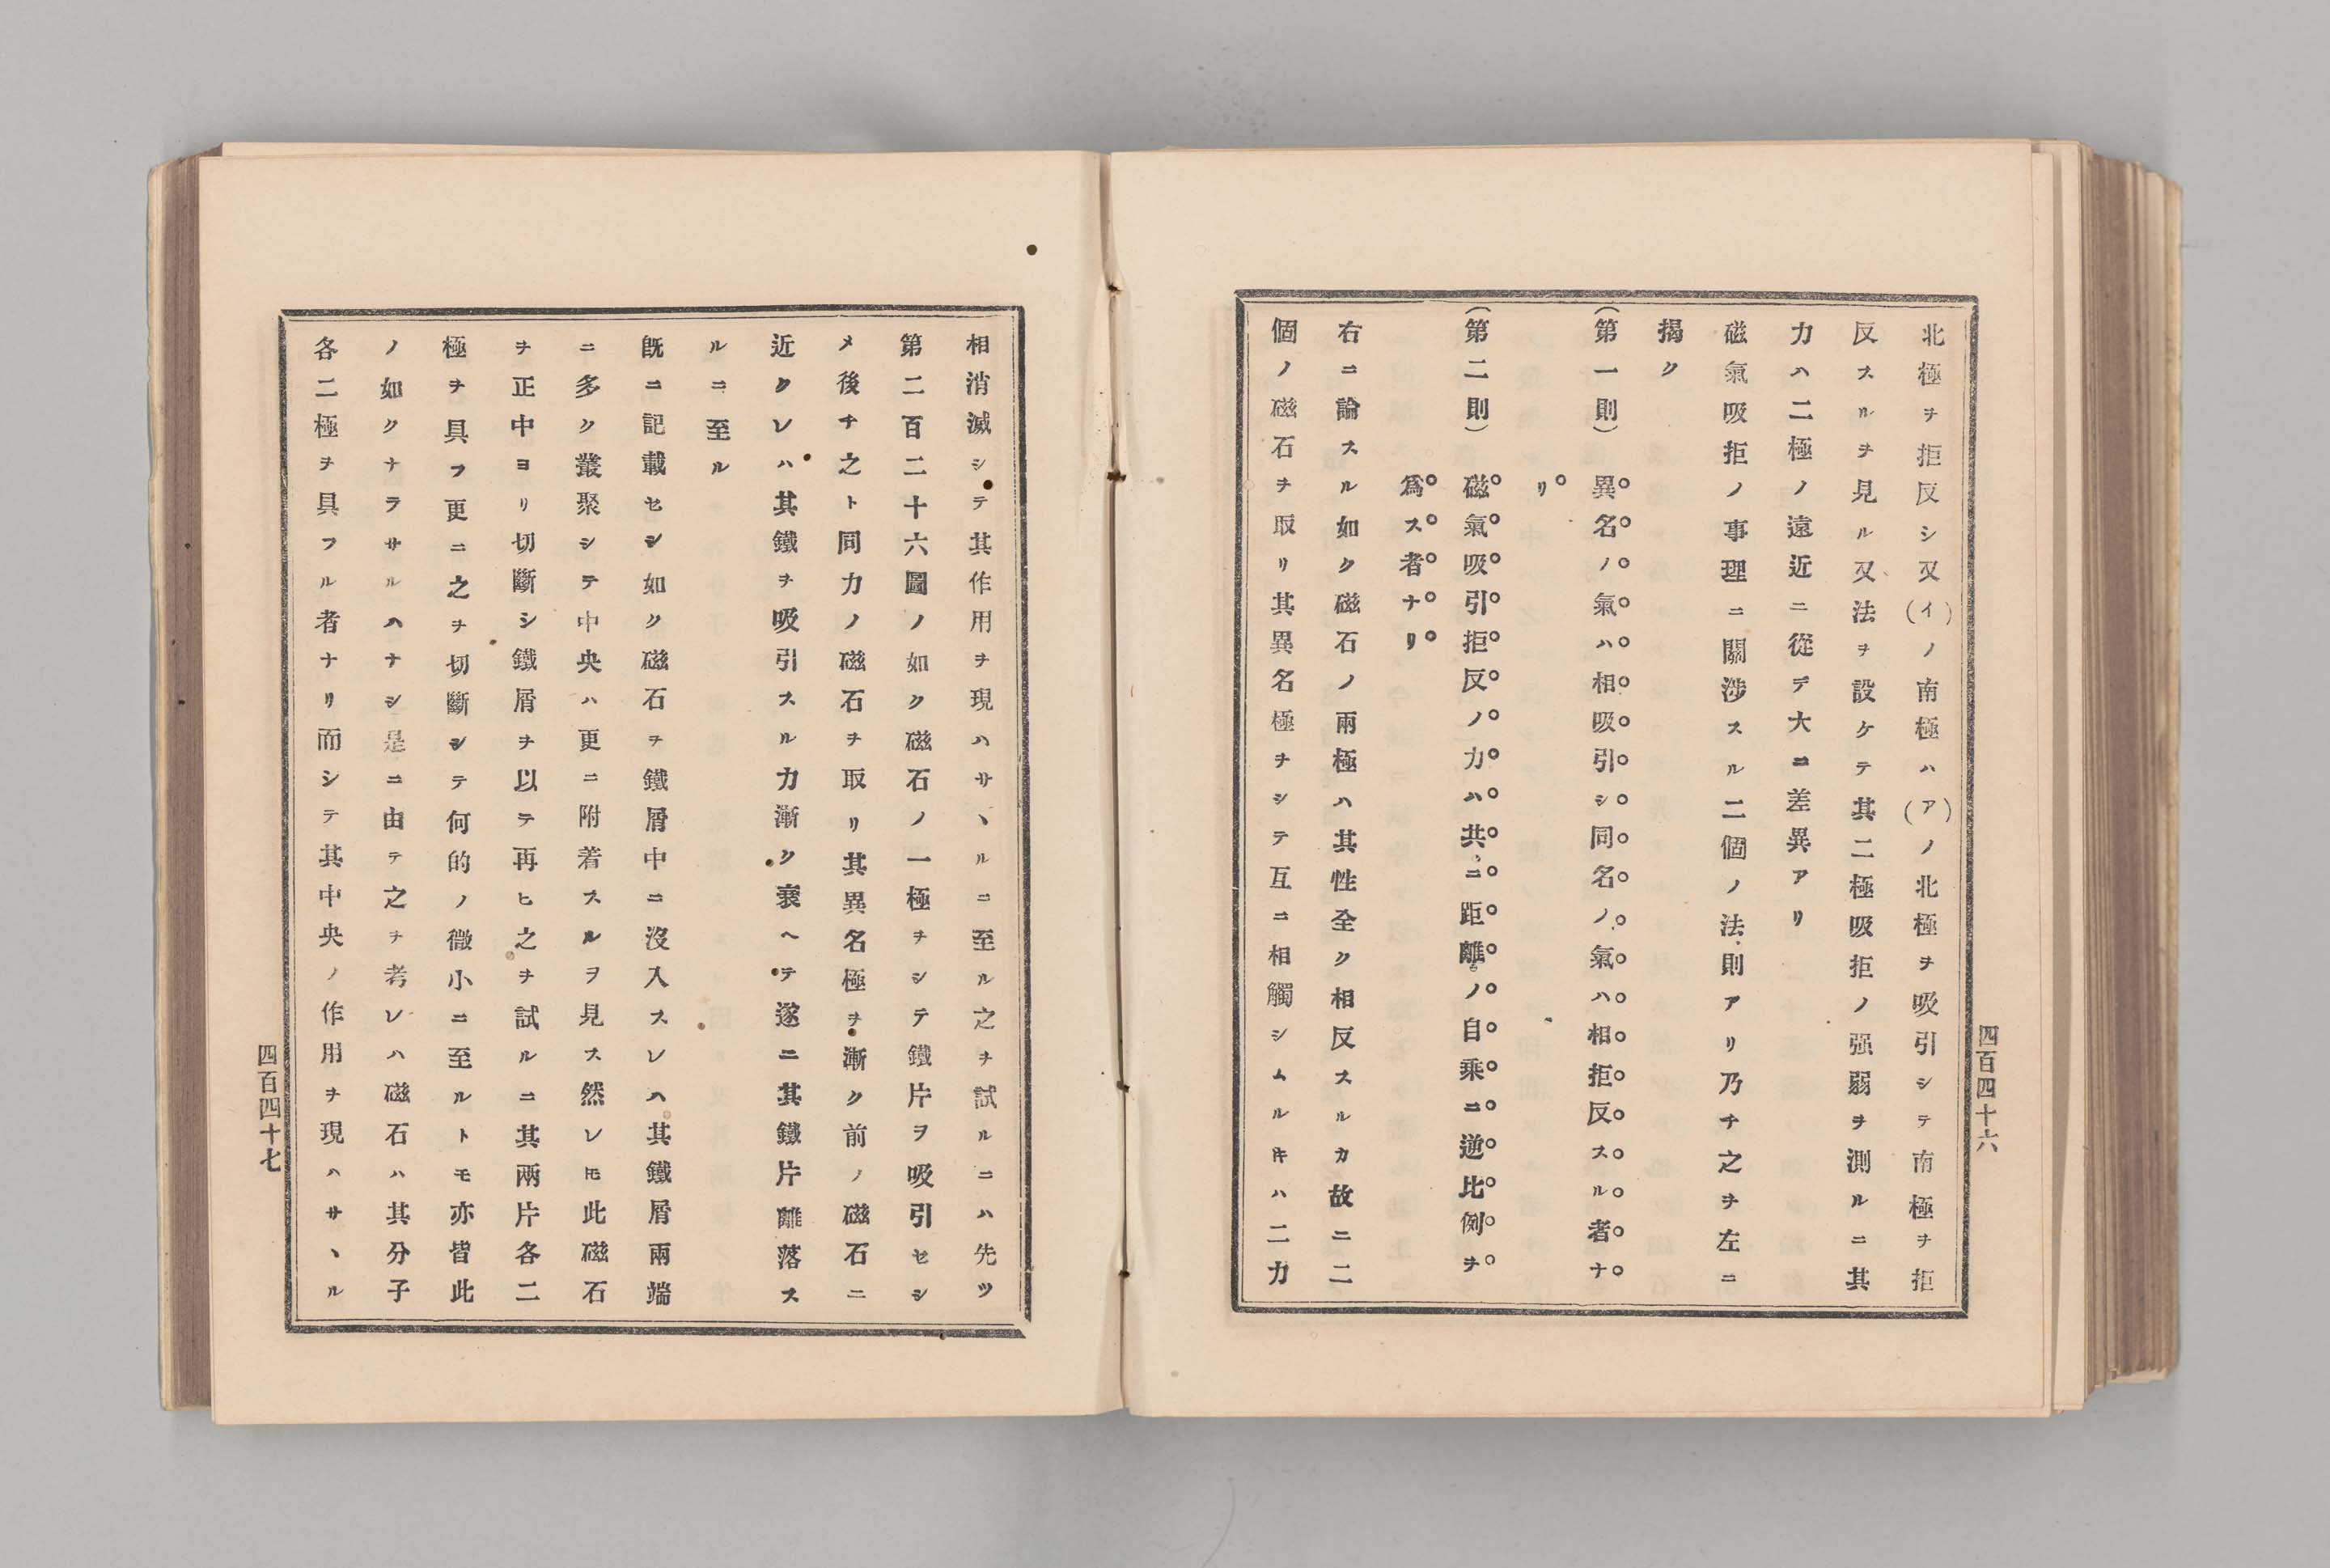 北極ヲ拒反シ又(イ)ノ南極ハ(ア)ノ北極ヲ吸引シテ南極ヲ拒
反スルヲ見ル又法ヲ設ケテ其二極吸拒ノ强弱ヲ測ルニ其
力ハ二極ノ遠近ニ從テ大ニ差異アリ
磁氣吸拒ノ事理ニ關涉スル二個ノ法則アリ乃チ之ヲ左ニ
揭ク
(第一則)異名ノ氣ハ相吸引シ同名ノ氣ハ相拒反スル者ナ
リ
(第二則)磁氣吸引拒反ノ力ハ共ニ距離ノ自乘ニ逆比例ヲ
爲ス者ナリ
右ニ論スル如ク磁石ノ兩極ハ其性全ク相反スルカ故ニ二
個ノ磁石ヲ取リ其異名極ヲシテ互ニ相觸シムルキハ二力
四百四十六
相消滅シテ其作用ヲ現ハサヽルニ至ル之ヲ試ルニハ先ツ
第二百二十六圖ノ如ク磁石ノ一極ヲシテ鐵片ヲ吸引セシ
メ後チ之ト同力ノ磁石ヲ取リ其異名極ヲ漸ク前ノ磁石ニ
近クレハ其鐵ヲ吸引スル力漸ク衰ヘテ遂ニ其鐵片離落ス
ルニ至ル
旣ニ記載セシ如ク磁石ヲ鐵屑中ニ沒入スレハ其鐵屑兩端
ニ多ク叢聚シテ中央ハ更ニ附着スルヲ見ス然レ𪜈此磁石
ヲ正中ヨリ切斷シ鐵屑ヲ以テ再ヒ之ヲ試ルニ其兩片各二
極ヲ具フ更ニ之ヲ切斷シテ何的ノ微小ニ至ルトモ亦皆此
ノ如クナラサルハナシ是ニ由テ之ヲ考レハ磁石ハ其分子
各二極ヲ具フル者ナリ而シテ其中央ノ作用ヲ現ハサヽル
四百四十七